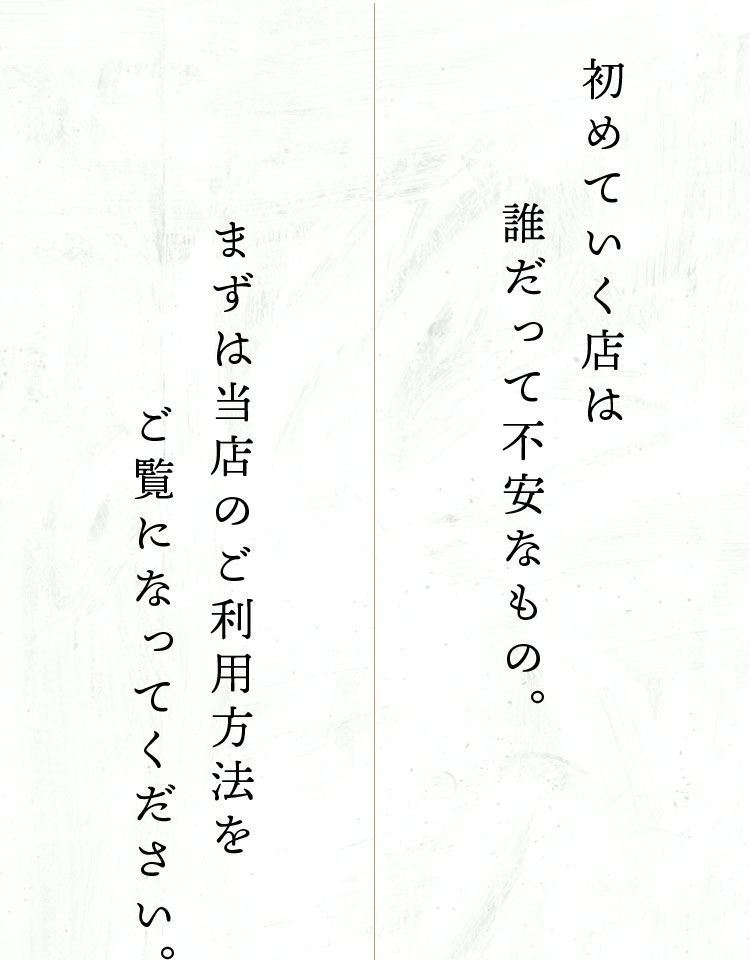 初めていく店は
誰だって不安なもの。
まずは当店のご利用方法を
ご覧になってください。